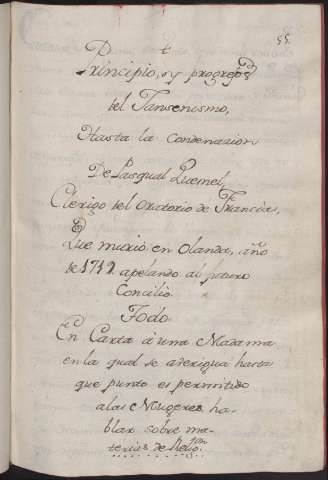 55.
†
Principio, y progresos
del Jansenismo,
Hasta la Condenacion
De Pasqual Quesnel,
Clerigo del Oratorio de Francia,
Que murio en Olanda, año
de 1719 apelando al futuro
Concilio.
Todo
En Carta à una Madama
en la qual se aberigua hasta
que punto es permitido
a las Mugeres ha-
blar sobre ma-
terias de Relig.on